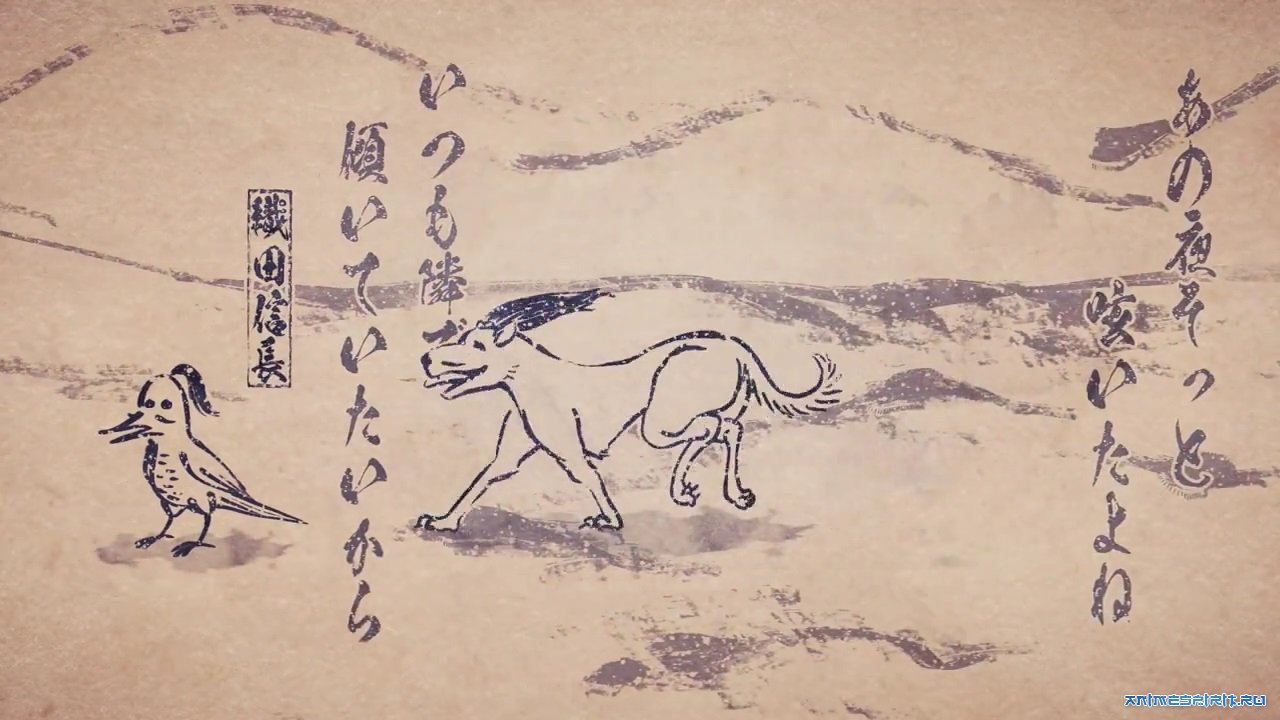 あの夜そっと
咳いたよね
いつも隣で
傾いていたいから
織田信長
ANIMESPIRIT.RU